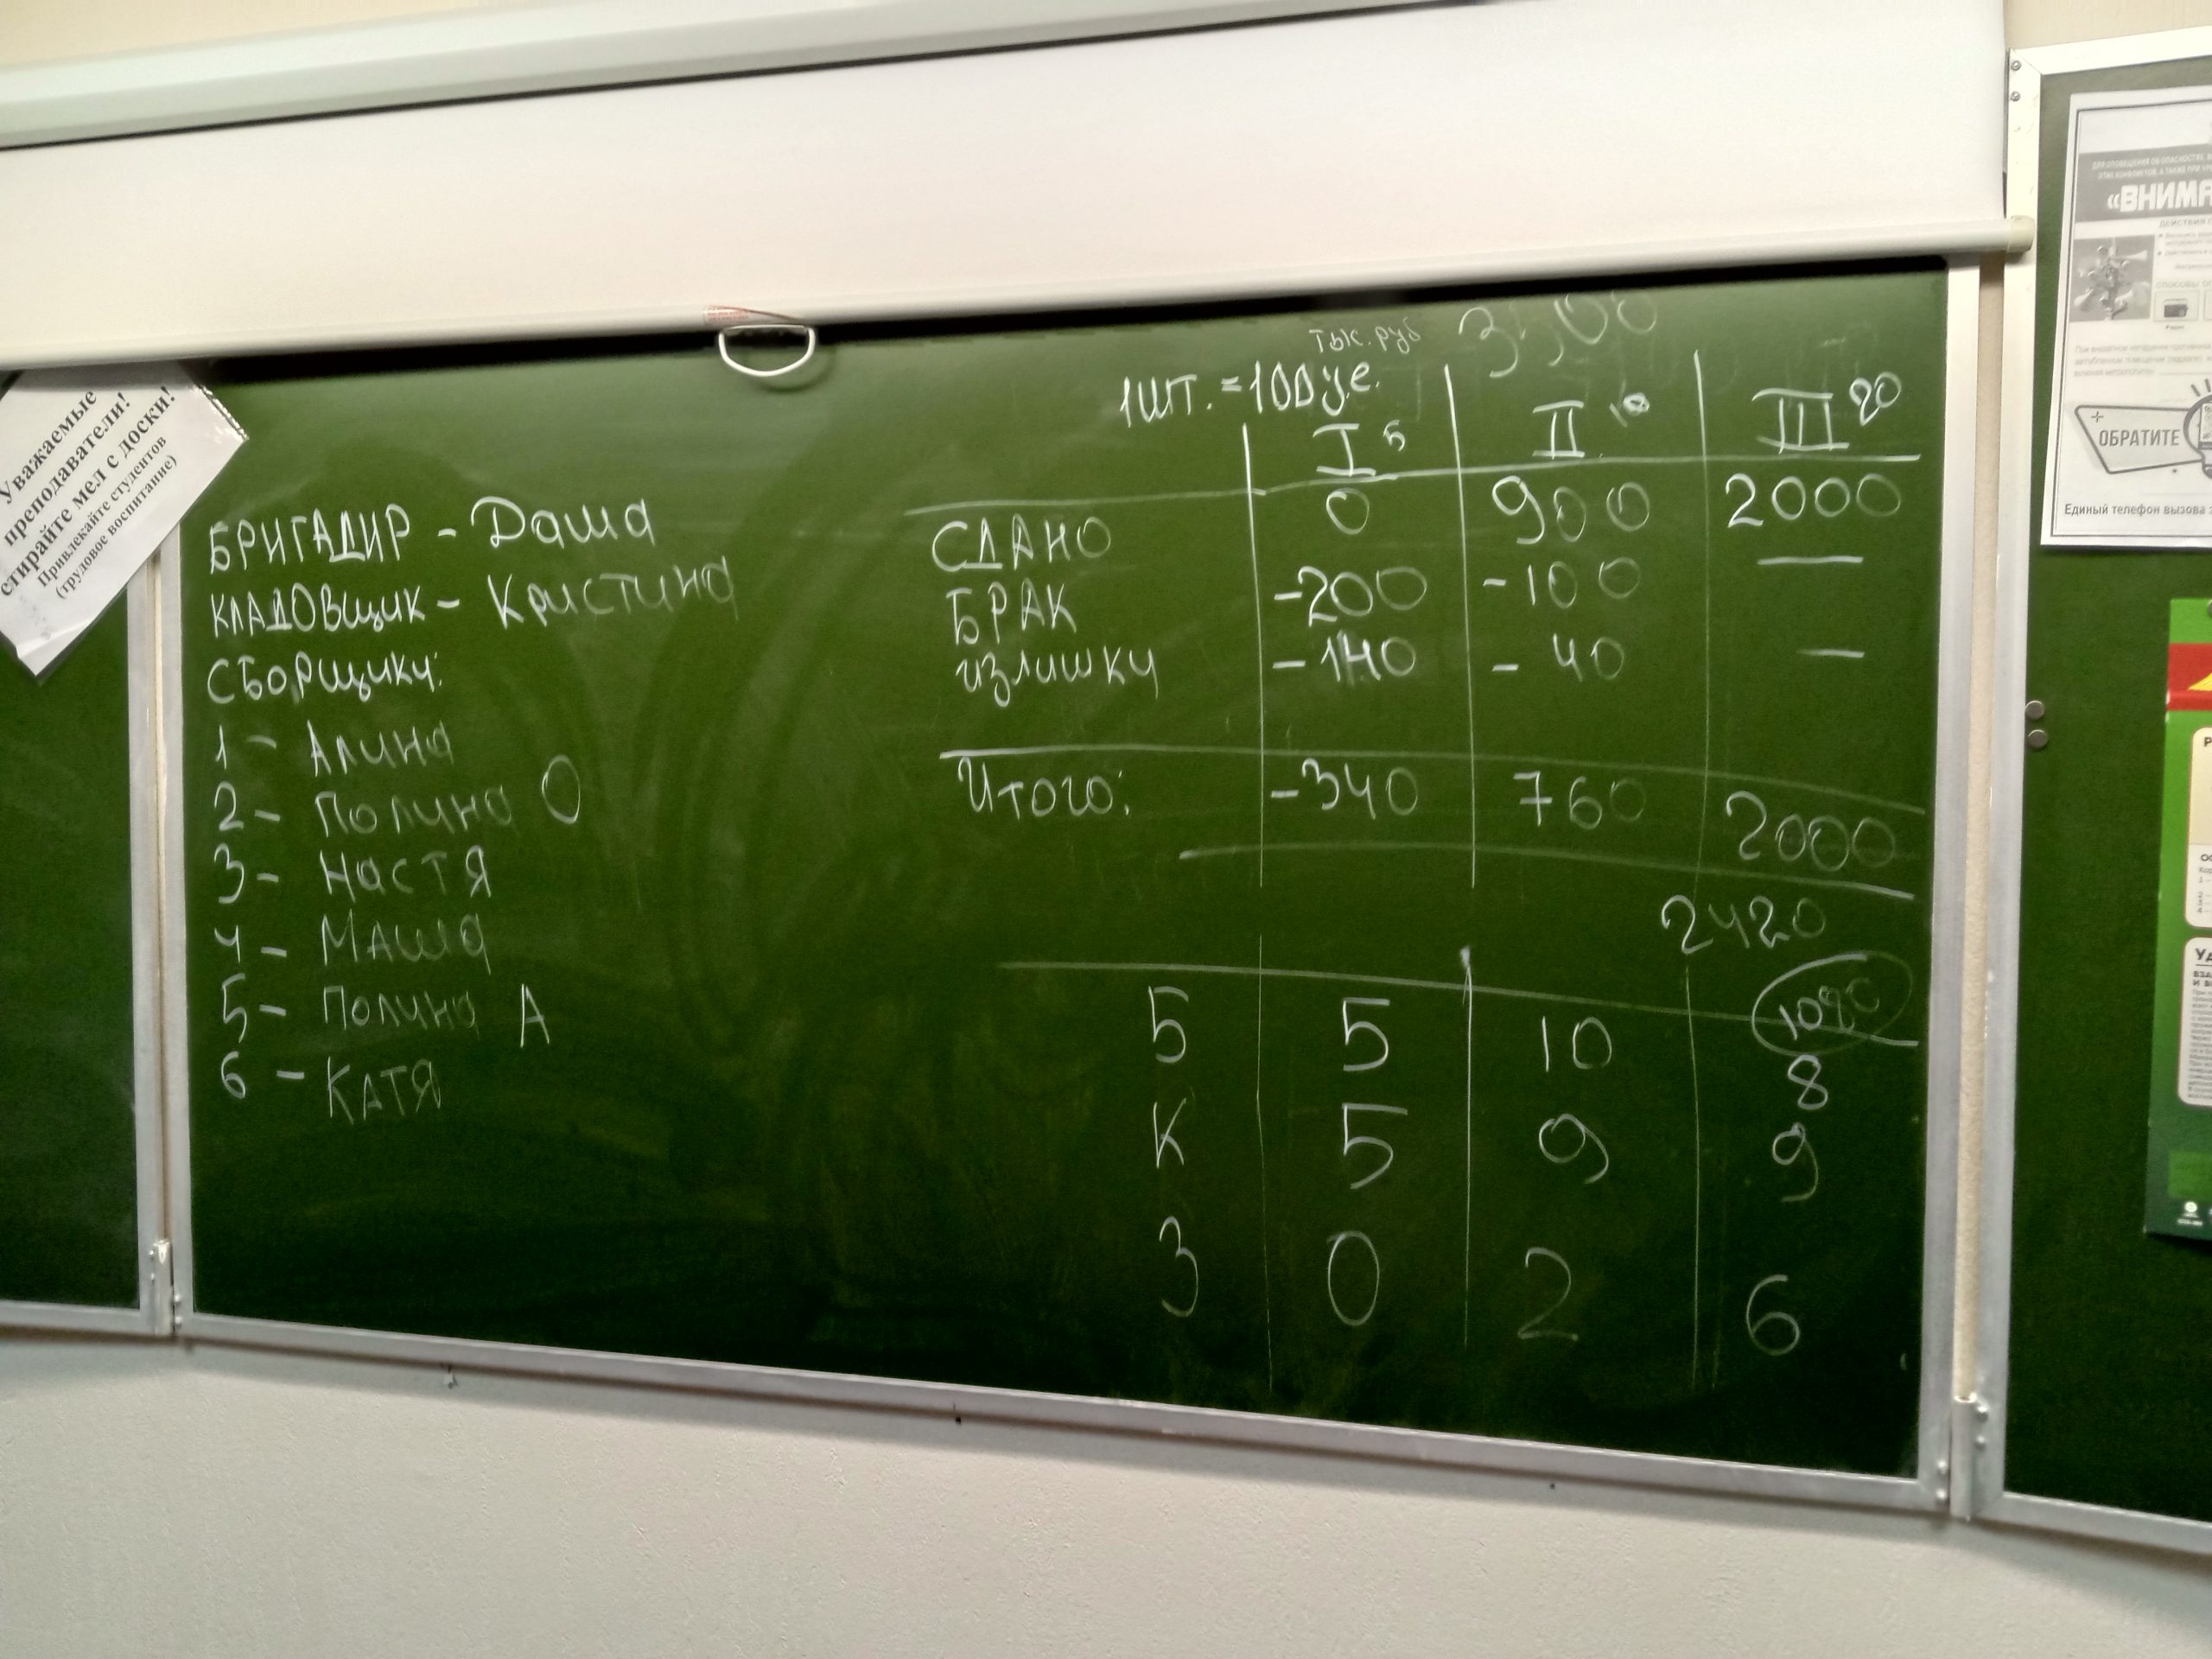 Уважаемые
преподаватели!
стирайте мел с доски!
Привлекайте студентов
(трудовое воспитание)
БРИГАДИР - Даша
КЛАДОВЩИК - Кристина
СБОРЩИКИ:
1 - Алина
2 - Полина О
3 - Настя
4 - Маша
5 - Полина А
6 - Катя
тыс. руб
1 шт. = 100 у.е.
I 5 II 10 III 20
СДАНО 0 900 2000
БРАК -200 -100 —
излишки -140 - 40 —
Итого: -340 760 2000
2420
Б 5 10 8
К 5 9 9
З 0 2 6
«ВНИМА
ОБРАТИТЕ
Единый телефон вызова